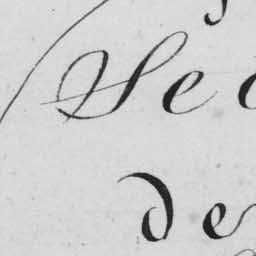 Se
de